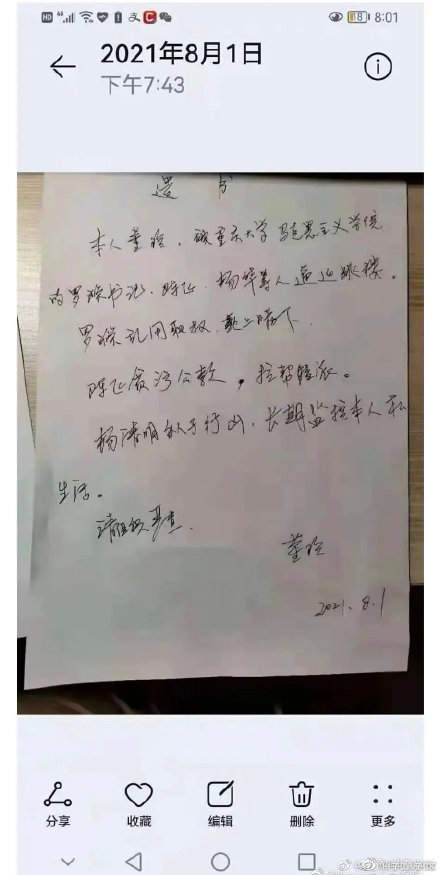 HD 4G 8 8:01
2021年8月1日
下午7:43
遗书
本人董玲，被重庆大学马克思主义学院
的罗 书记、陈飞、杨 等人逼迫跳楼。
罗 乱用职权，欺上瞒下
陈飞贪污公款，拉帮结派。
杨清明 行凶，长期监控本人私
生活。
请组织严查
董玲
2021.8.1
分享 收藏 编辑 删除 更多